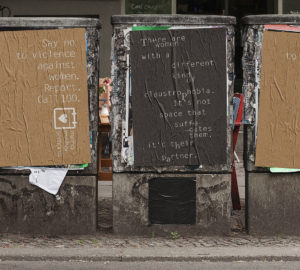 Say no
to violence
against
women.
Report.
Call 100.
There are
women
with a
different
kind
of
claustrophobia.
It's not
space that
suffo-
cates
them,
it's their
partner.